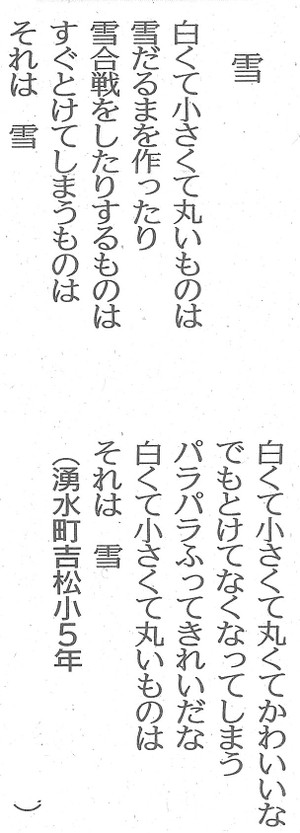 雪
白くて小さくて丸いものは
雪だるまを作ったり
雪合戦をしたりするものは
すぐとけてしまうものは
それは　雪
白くて小さくて丸くてかわいいな
でもとけてなくなってしまう
パラパラふってきれいだな
白くて小さくて丸いものは
それは　雪
（湧水町吉松小５年　　　　）